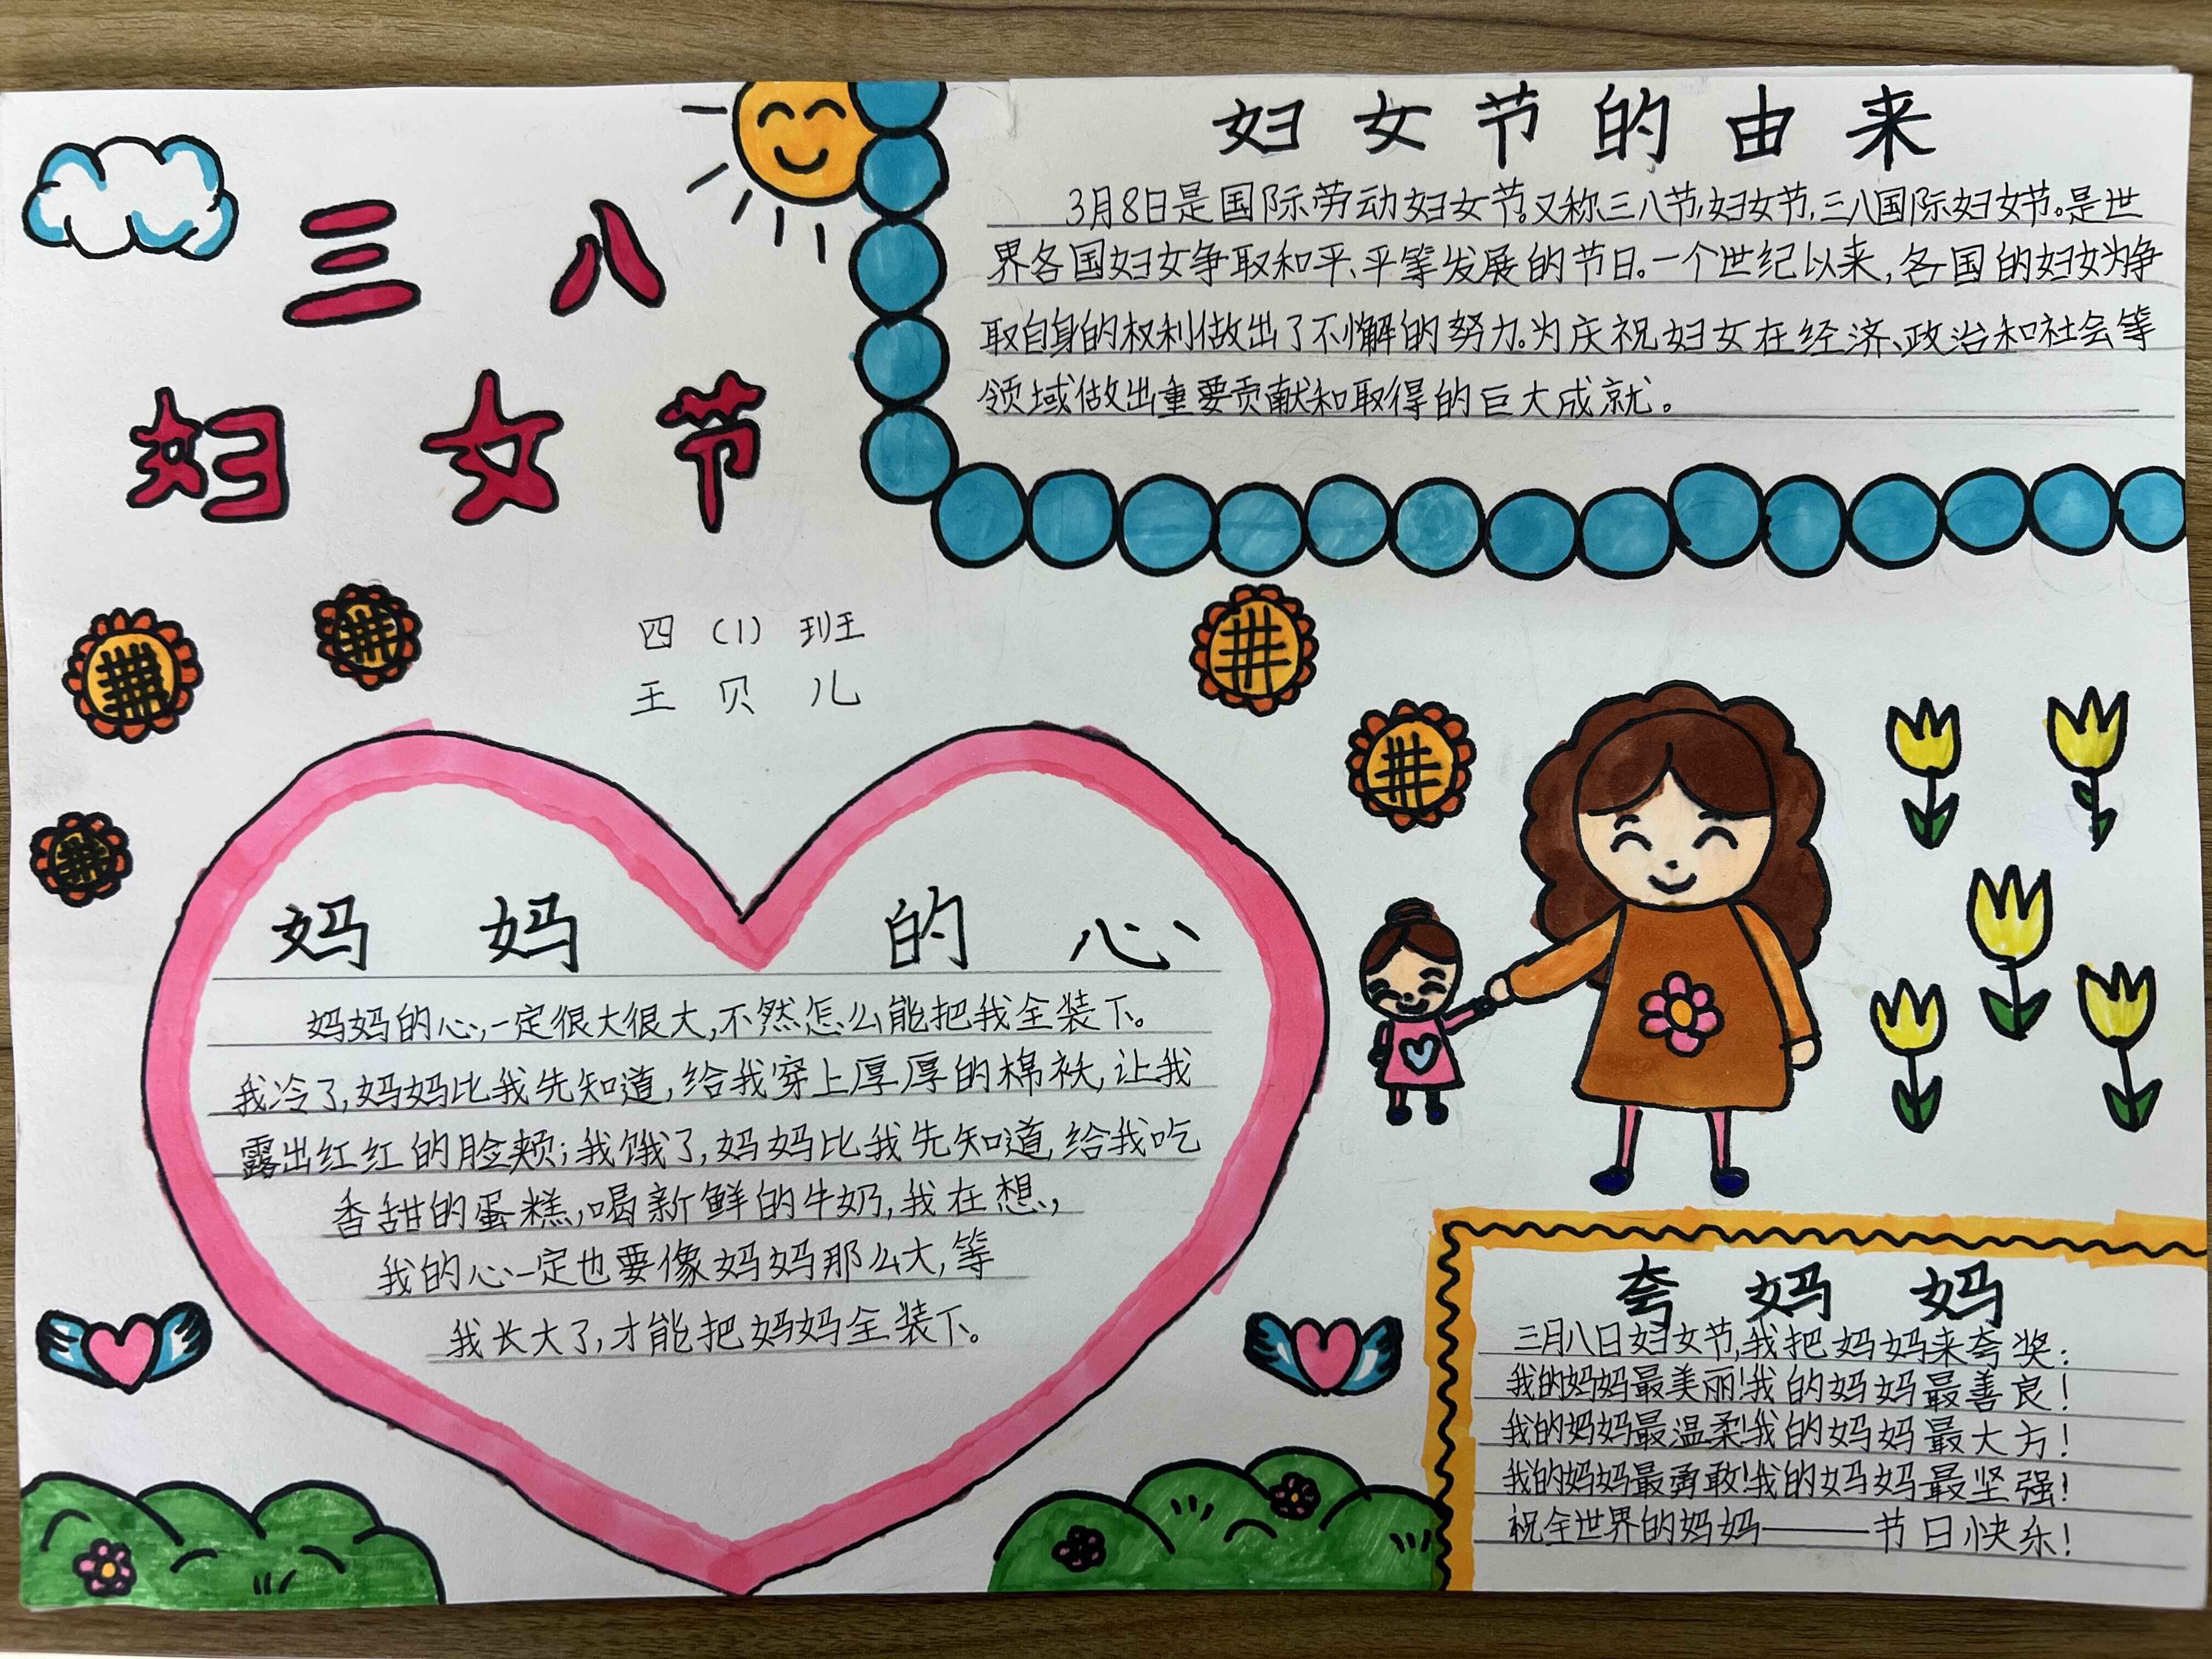 三八
妇女节
四（1）班
王贝儿
妇女节的由来
3月8日是国际劳动妇女节。又称三八节,妇女节,三八国际妇女节。是世
界各国妇女争取和平、平等发展的节日。一个世纪以来,各国的妇女为争
取自身的权利做出了不懈的努力。为庆祝妇女在经济、政治和社会等
领域做出重要贡献和取得的巨大成就。
妈妈的心
妈妈的心,一定很大很大,不然怎么能把我全装下。
我冷了,妈妈比我先知道,给我穿上厚厚的棉袄,让我
露出红红的脸颊;我饿了,妈妈比我先知道,给我吃
香甜的蛋糕,喝新鲜的牛奶,我在想,
我的心一定也要像妈妈那么大,等
我长大了,才能把妈妈全装下。
夸妈妈
三月八日妇女节,我把妈妈来夸奖:
我的妈妈最美丽!我的妈妈最善良!
我的妈妈最温柔!我的妈妈最大方!
我的妈妈最勇敢!我的妈妈最坚强!
祝全世界的妈妈——节日快乐!